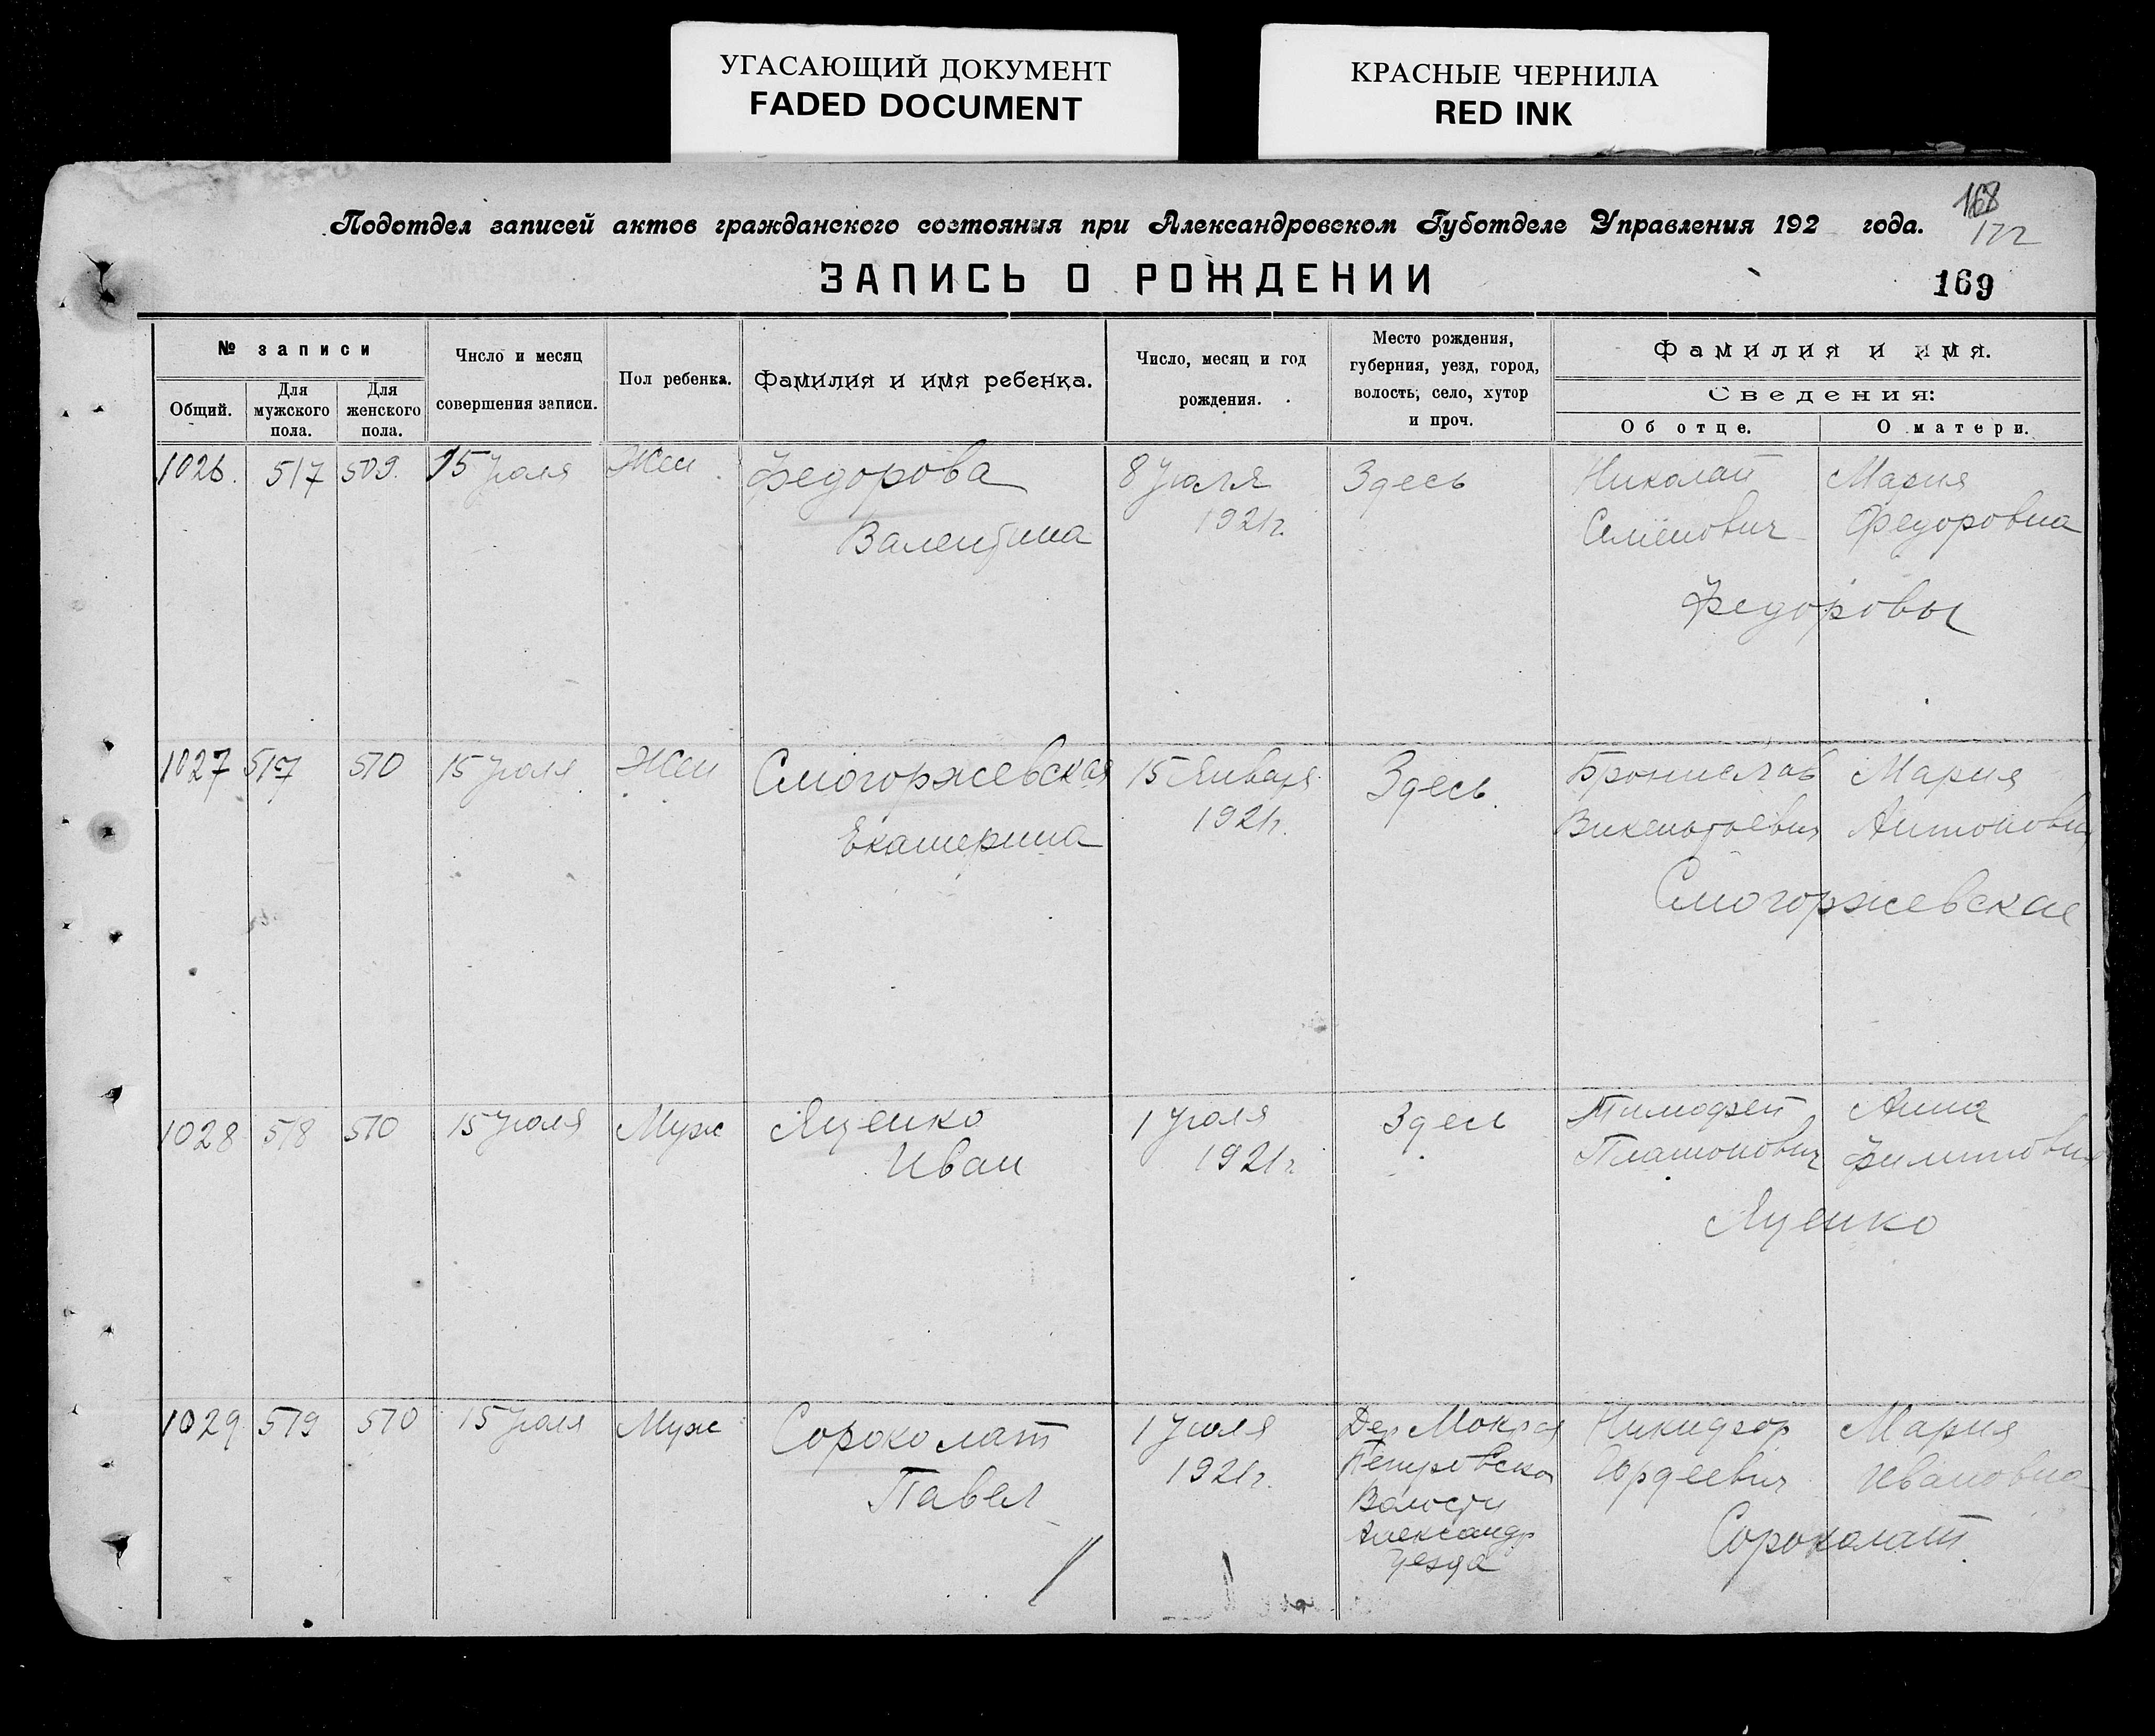 УГАСАЮЩИЙ ДОКУМЕНТ
FADED DOCUMENT
КРАСНЫЕ ЧЕРНИЛА
RED INK
168
172
Подотдел записей актов гражданского состояния при Александровском Губотделе Управления 192 года.
ЗАПИСЬ О РОЖДЕНИИ
169
№ записи
Общий.
Для мужского пола.
Для женского пола.
Число и месяц совершения записи.
Пол ребенка.
Фамилия и имя ребенка.
Число, месяц и год рождения.
Место рождения, губерния, уезд, город, волость, село, хутор и проч.
Фамилия и имя.
Сведения:
Об отце.
О матери.
1026. 517 509. 15 Июля Жен. Федорова 8 Июля Здесь Николай Мария
Валентина 1921г. Семенович Федоровна
Федоровы
1027 517 510 15 Июля Жен Смогоржевская 15 Января Здесь. Бронислав Мария
Екатерина 1921г. Викентьевич Антоновна
Смогоржевская
1028 518 510 15 Июля Муж Яценко 1 Июля Здесь Тимофей Анна
Иван 1921г Платонович
Яценко
1029 519 510 15 Июля Муж Сороколат 1 Июля Дер Мокрая Никифор Мария
Павел 1921г. Петровской Гордеевич Ивановна
Волости
Александр
Уезда
Сороколат